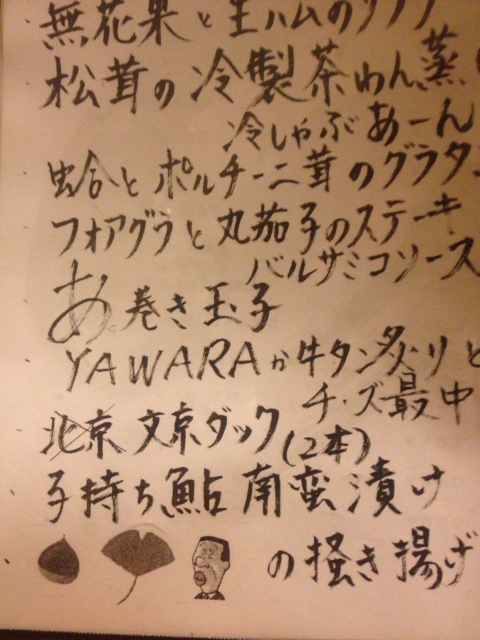 無花果と生ハムのサラダ
松茸の冷製茶わん蒸
冷しゃぶあーん
蛤とポルチーニ茸のグラタン
フォアグラと丸茄子のステーキ
バルサミコソース
あ巻き玉子
YAWARAか牛タン炙りと
チーズ最中
北京文京ダック(2本)
子持ち鮎南蛮漬け
の掻き揚げ